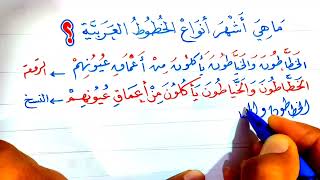 مَا هِيَ أَشْهَر أَنْوَاعْ الخُطُوطُ العَرَبِيَّة ؟
الخَطَّاطُونَ وَالخَيَّاطُونَ يَأكُلُونَ مِنْ أَعْمَاقِ عُيُونِهِمْ ← رقعة
الخَطَّاطُونَ وَالخَيَّاطُونَ يَأكُلُونَ مِنْ أَعمَاقِ عُيُونِهِمْ ← النسخ
الخطاطون